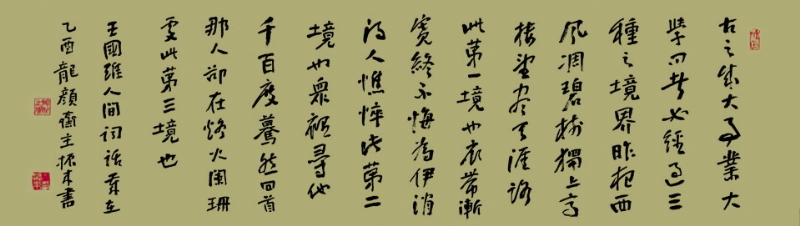 古之成大事業大
學问者必經過三
種之境界昨夜西
風凋碧樹獨上高
樓望盡天涯路
此第一境也衣帶漸
寬終不悔為伊消
得人憔悴此第二
境也衆裡尋他
千百度驀然回首
那人卻在燈火闌珊
處此第三境也
王國維人间词话
乙酉龍顏齋主書